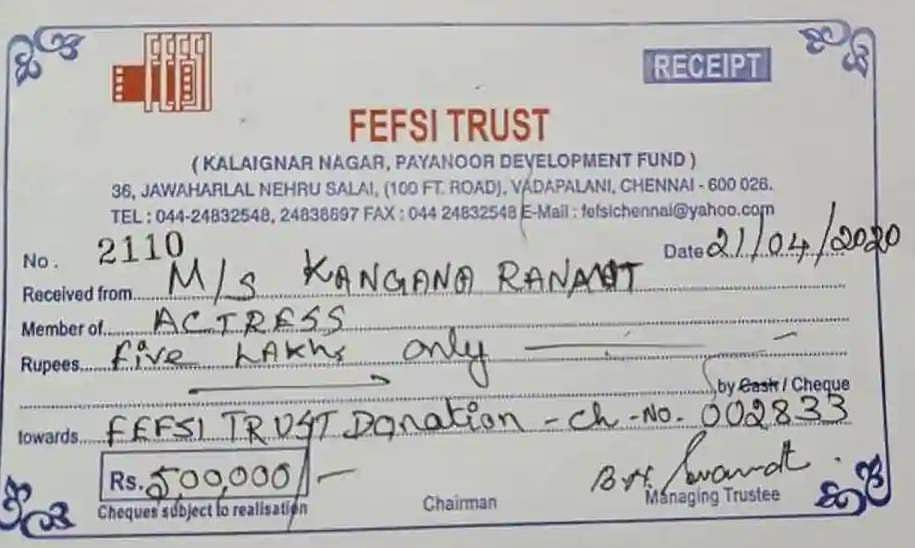 RECEIPT
FEFSI TRUST
( KALAIGNAR NAGAR, PAYANOOR DEVELOPMENT FUND )
36, JAWAHARLAL NEHRU SALAI, (100 FT. ROAD), VADAPALANI, CHENNAI - 600 026.
TEL : 044-24832548, 24838697 FAX : 044 24832548 E-Mail : fefsichennai@yahoo.com
No. 2110 Date 21/04/2020
Received from M/s KANGANA RANAUT
Member of ACTRESS
Rupees Five LAKhs only
by Cash / Cheque
towards FEFSI TRUST Donation - ch - No. 002833
Rs. 500,000/-
Cheques subject to realisation Chairman Managing Trustee